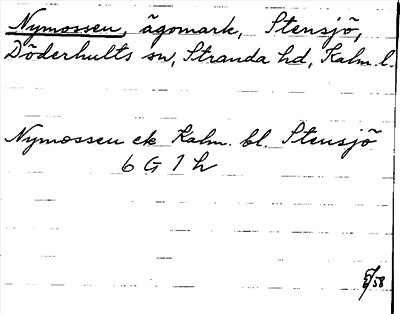 Nymossen, ägomark, Stensjö,
Döderhults sn, Stranda hd, Kalm. l.
Nymossen ek Kalm. bl. Stensjö
6 G 1 h
58